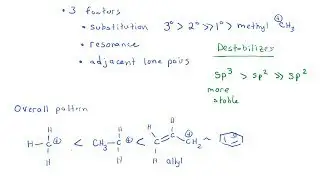 • 3 factors
• substitution 3° > 2° >> 1° > methyl ⊕CH₃
• resonance
• adjacent lone pairs
Destabilizes
sp³ > sp² >> sp²
more
stable
Overall pattern
H H H H
H–C⊕ < CH₃–C⊕ < C=C–CH₂⊕ ~
H H H allyl